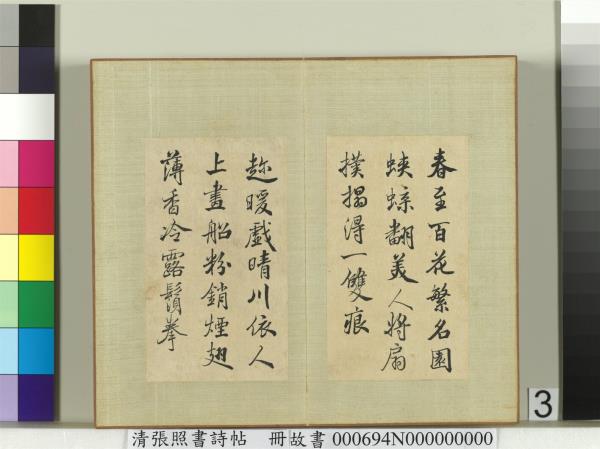 春至百花繁名園
蛺蝶翻美人將扇
撲搨得一雙痕
趁暖戲晴川依人
上畫船粉銷煙翅
薄香冷露鬚拳
3
清張照書詩帖　冊故書 000694N000000000